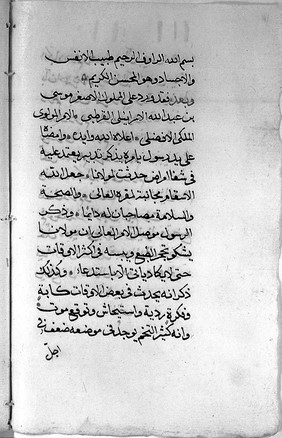 بسم الله الراوف الرحيم طبيب الانفس
والاجساد وهو المحسن الكريم
وبعد فقد ورد على المملوك الاصغر موسى
بن عبد الله الاسرايلي القرطبي الامر المولوي
الملكي الافضلي اعلاه الله وايده وامضا
على يد رسول بامره بذكر تدبير يعتمد عليه
في شفا امراض حدثت لمولانا جعل الله
الاسقام مجانبة لمقره العالي والصحة
والسلامة مصاحبان له دايما وذكر
الرسول موصل الامر العالي ان مولانا
يشكو تحجر الطبع ويبسه في اكثر الاوقات
حتى لا يكاد ياتي الا باستدعا وكذلك
ذكر انه يحدث في بعض الاوقات كابة
وفكرة ردية واستيحاش وتوقع موت
وانه كثير التخم يوجد في موضعه ضعف في
اجل